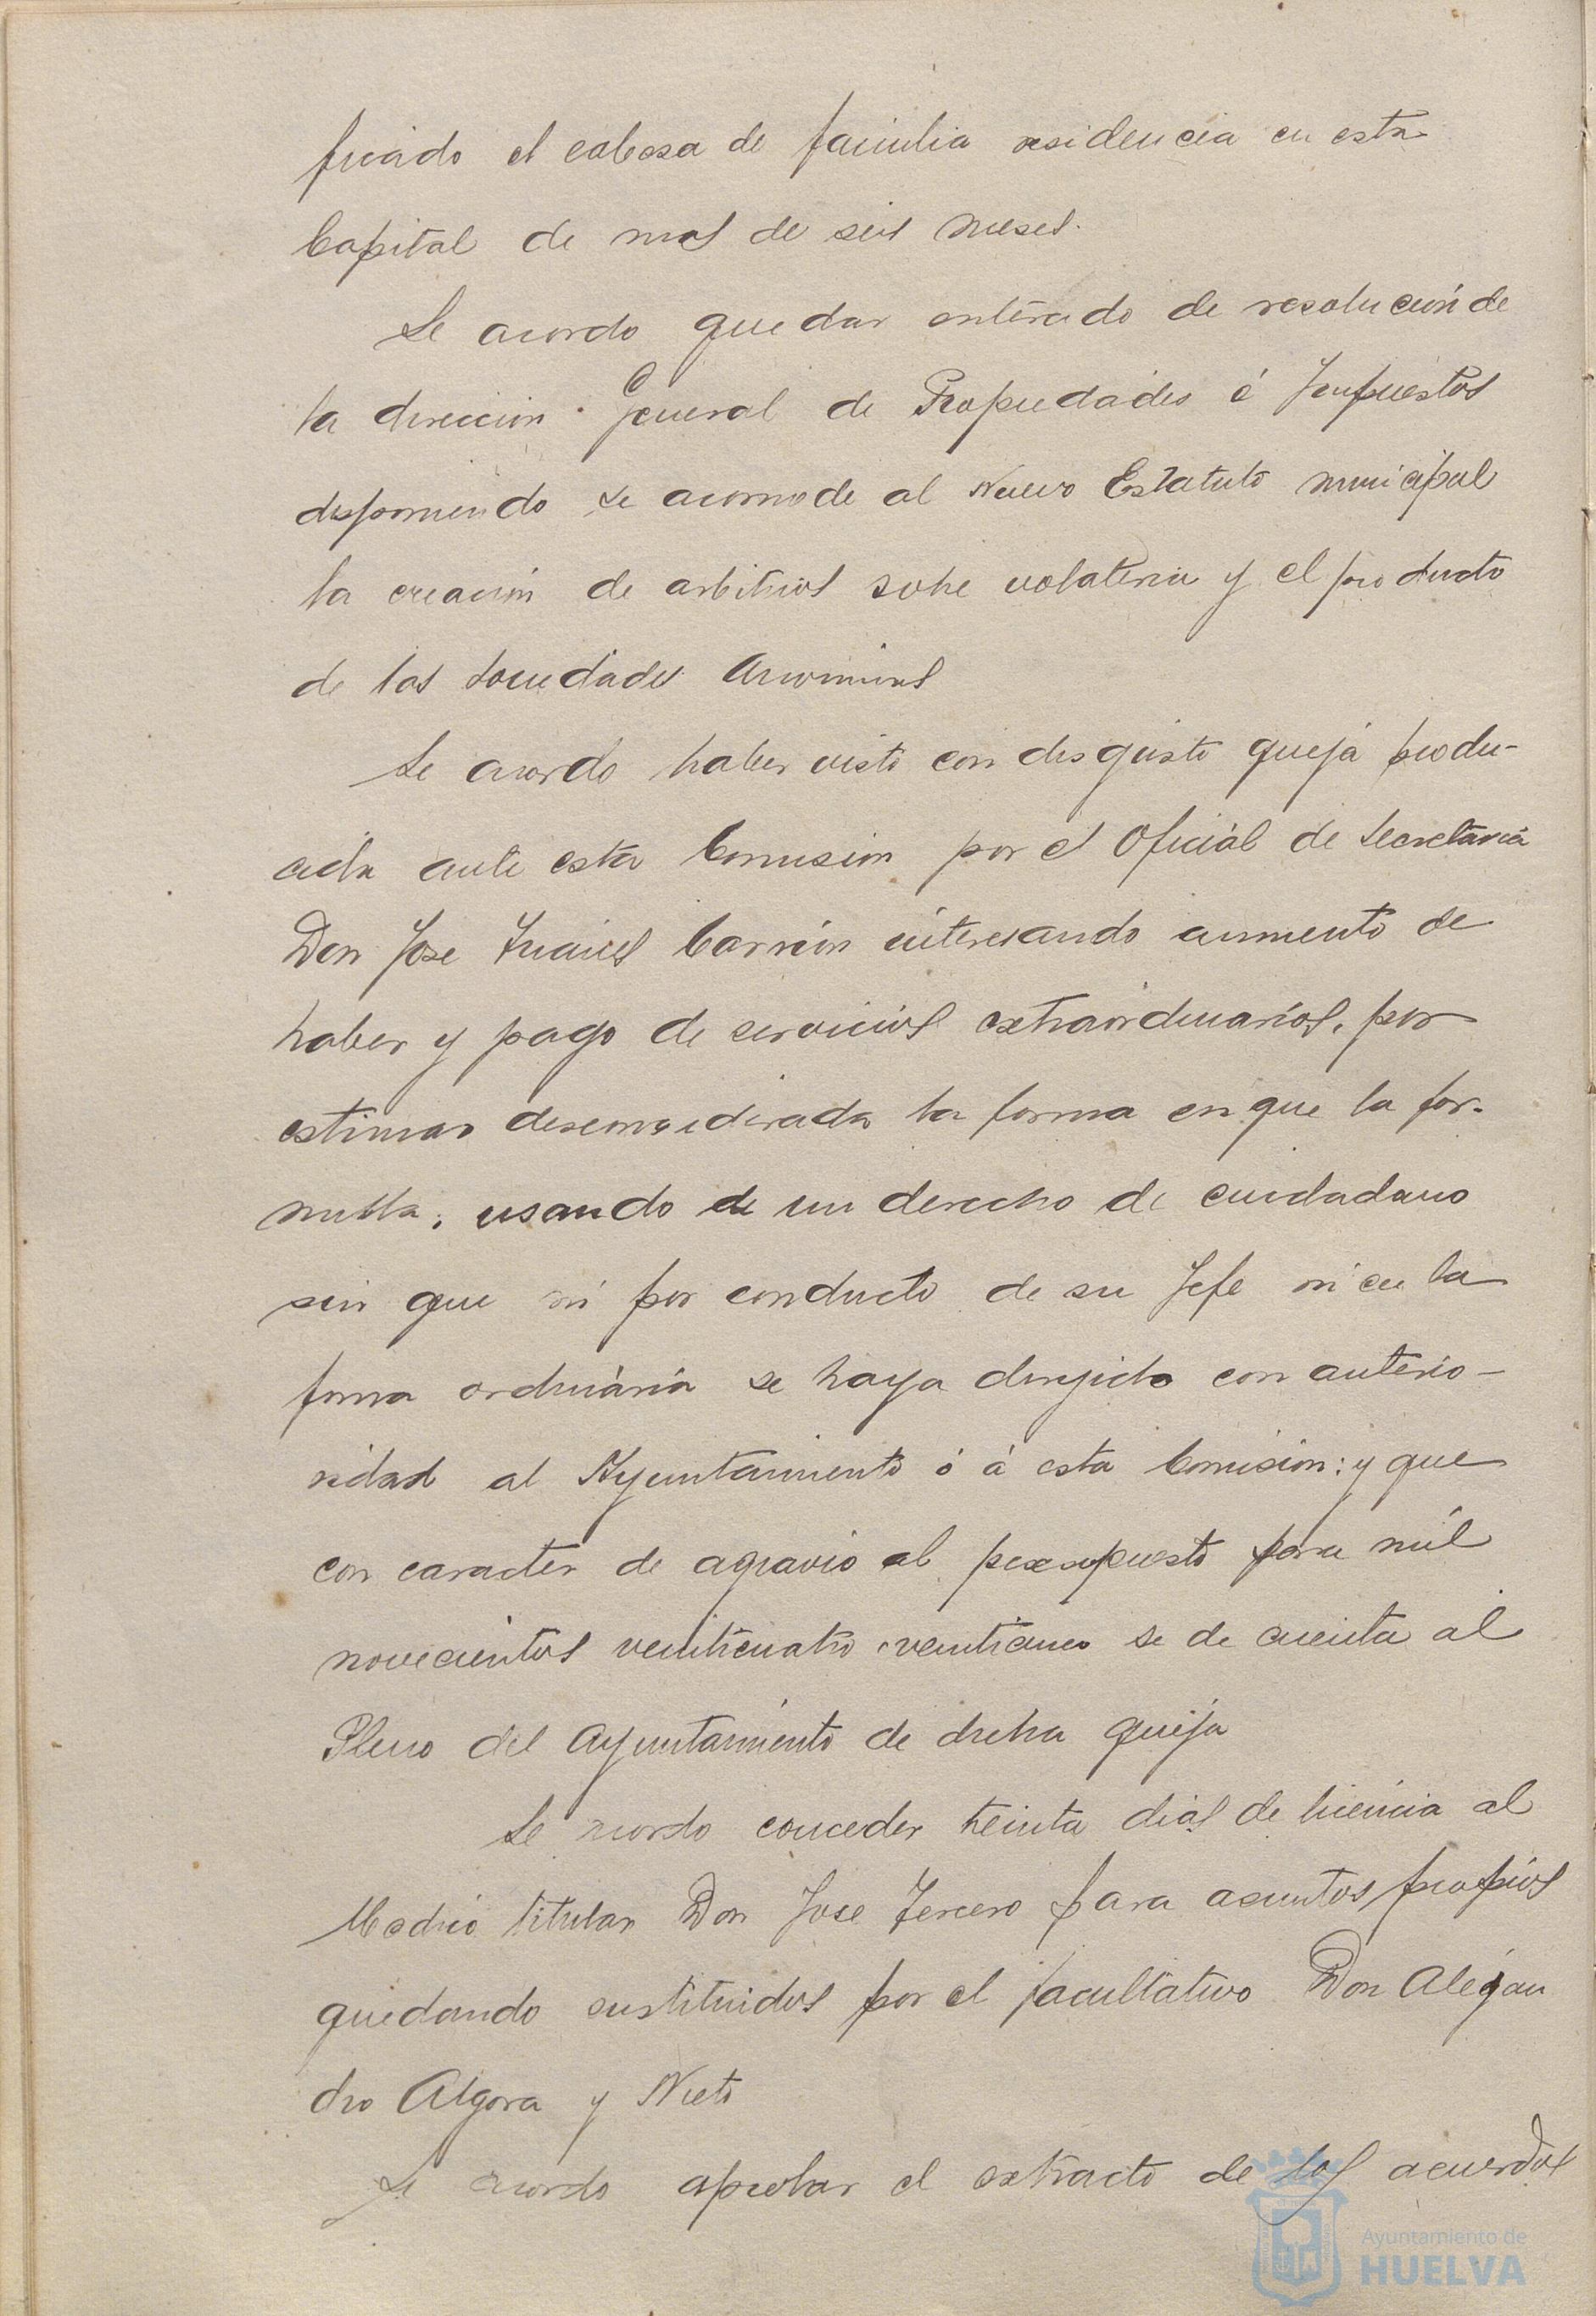 ficado el cabesa de familia residencia en esta
Capital de mas de seis meses.
Se acordo quedar enterado de resolución de
la direccion General de Propiedades é Impuestos
disponiendo se acomode al Nuevo Estatuto municipal
la creación de arbitrios sobre volateria y el producto
de las Sociedades Anonimas
Se acordo haber visto con disgusto queja produ-
cida ante esta Comision por el Oficial de Secretaria
Don Jose Carrión interesando aumento de
haber y pago de servicios extraordinarios, por
estimar desconsiderada la forma en que la for-
mula, usando de un derecho de ciudadano
sin que ni por conducto de su Jefe ni en la
forma ordinaria se haya dirigido con anterio-
ridad al Ayuntamiento ó á esta Comision: y que
con caracter de agravio al presupuesto para mil
novecientos veinticuatro veinticinco se de cuenta al
Pleno del Ayuntamiento de dicha queja
Se acordo conceder treinta dias de licencia al
Medico titular Don Jose Tercero para asuntos propios
quedando sustituidos por el facultativo Don Alejan
dro Algora y Nieto
Se acordo aprobar el extracto de los acuerdos
Ayuntamiento de
HUELVA